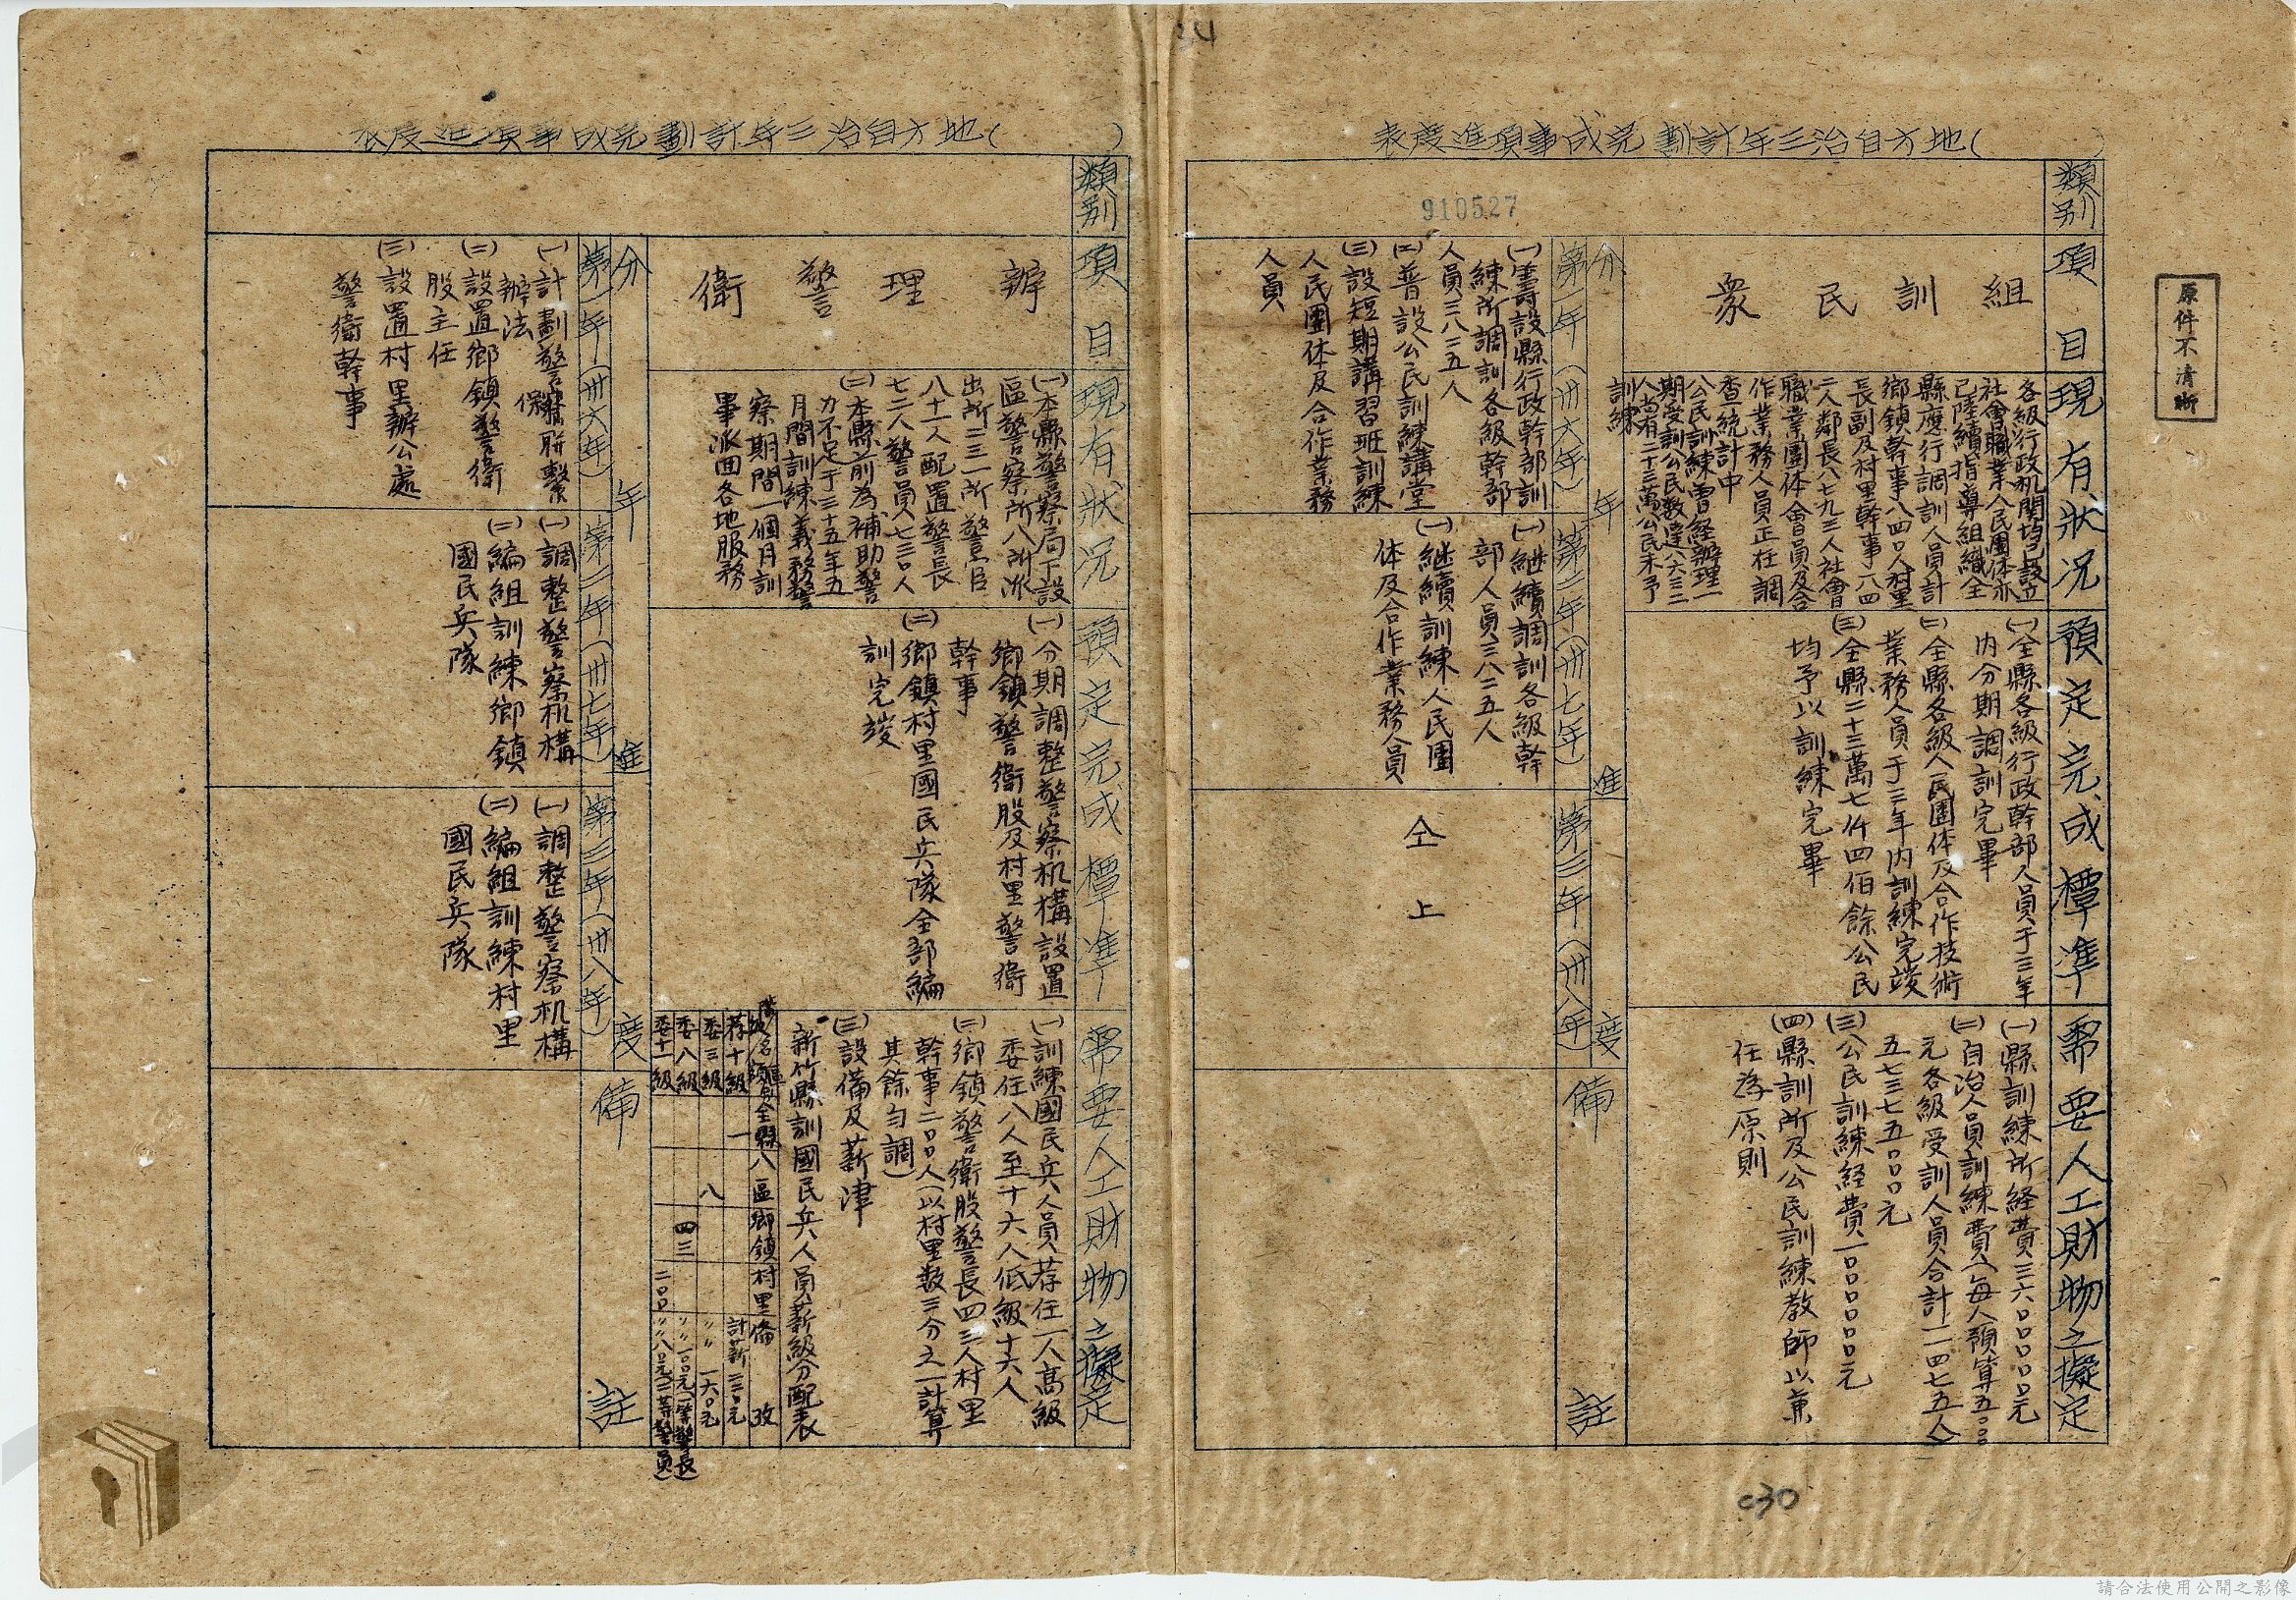 34
910527
原件不清晰
地方自治三年計劃完成事項進度表(
類別
項目
組訓民衆
現有狀況
各級行政机関均已設立
社會職業人民團体亦
已陸續指導組織全
縣應行調訓人員計
鄉鎮幹事八四〇人村里
長副及村里幹事一八四
二人鄰長六七九三人社會
職業團体會員及合
作業務人員正在調
查統計中
公民訓練曾経辦理一
期受訓公民數達六六三二
人尚有二十三萬公民未予
訓練
預定完成標準
(一)全縣各級行政幹部人員于三年
內分期調訓完畢
(二)全縣各級人民團体及合作技術
業務人員于三年內訓練完竣
(三)全縣二十三萬七仟四佰餘公民
均予以訓練完畢
需要人工財物之擬定
(一)縣訓練所経費三六〇〇〇〇〇元
(二)自治人員訓練費(每人預算五〇〇〇
元各級受訓人員合計一一四七五人)
五七三七五〇〇〇元
(三)公民訓練経費一〇〇〇〇〇〇元
(四)縣訓所及公民訓練教師以兼
任為原則
分年進度
第一年(卅六年)
(一)籌設縣行政幹部訓
練所調訓各級幹部
人員三八二五人
(二)普設公民訓練講堂
(三)設短期講習班訓練
人民團体及合作業務
人員
第二年(卅七年)
(一)継續調訓各級幹
部人員三八二五人
(一)継續訓練人民團
体及合作業務人員
第三年(卅八年)
仝上
備註
c30
地方自治三年計劃完成事項進度表(
類別
項目
辦理警衛
現有狀況
(一)本縣警察局下設
區警察所八所派
出所三一所警官
八十一人配置警長
七二人警員八七三〇人
(二)本縣前為補助警
力不足于三十五年五
月間訓練義務警
察期間一個月訓
畢派回各地服務
預定完成標準
(一)分期調整警察机構設置
鄉鎮警衛股及村里警衛
幹事
(二)鄉鎮村里國民兵隊全部編
訓完竣
需要人工財物之擬定
(一)訓練國民兵人員荐任一人高級
委任八人至十六人低級十六人
(二)鄉鎮警衛股警長四三人村里
幹事二〇〇人(以村里数三分之一計算
其餘勻調)
(三)設備及薪津
新竹縣訓國民兵人員薪級分配表
全縣 八區 鄉鎮 村里 備攷
荐十級 一 計薪二二〇元
委三級 八 〃〃一六〇元
委八級 四三 〃〃一〇〇元(一等警長)
委十一級 二〇〇 〃〃八〇元(二等警員)
分年進度
第一年(卅六年)
(一)計劃警保聯繫
辦法
(二)設置鄉鎮警衛
股主任
(三)設置村里辦公處
警衛幹事
第二年(卅七年)
(一)調整警察机構
(二)編組訓練鄉鎮
國民兵隊
第三年(卅八年)
(一)調整警察机構
(二)編組訓練村里
國民兵隊
備註
請合法使用公開之影像